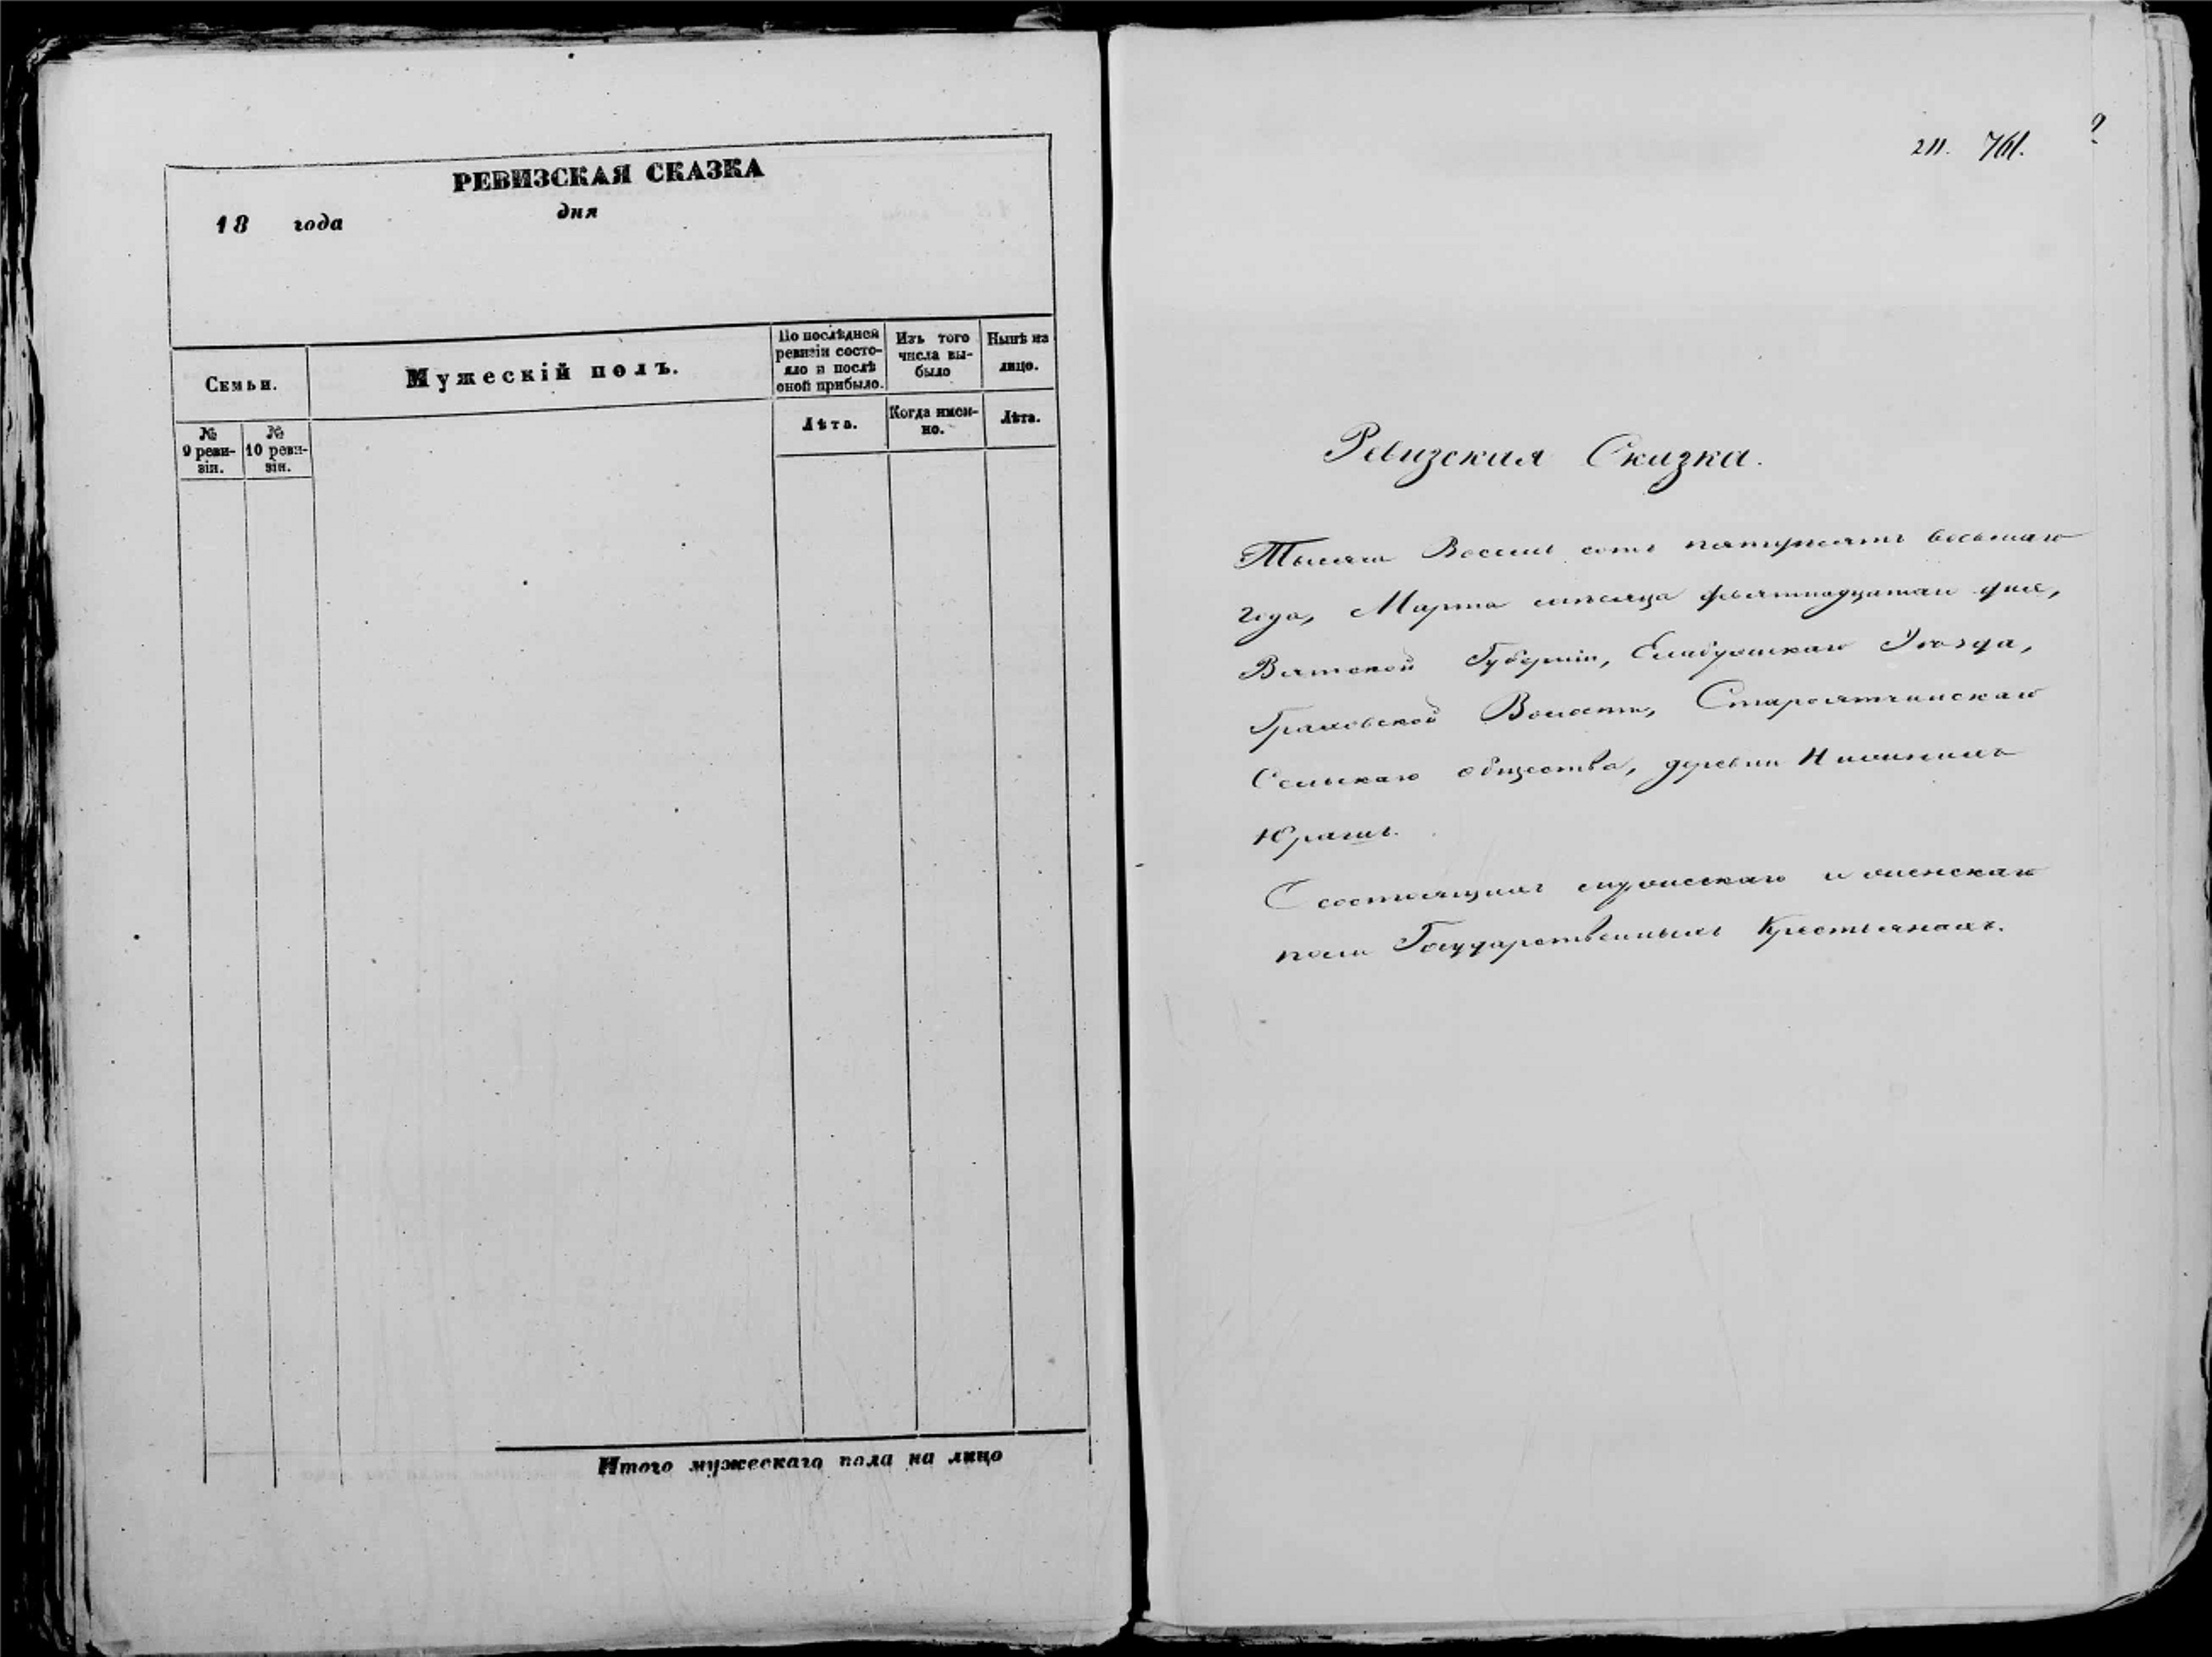 РЕВИЗСКАЯ СКАЗКА
18 года дня
Семьи.
Мужескій полъ.
По послѣдней ревизіи состояло и послѣ оной прибыло.
Изъ того числа выбыло
Нынѣ на лицо.
№ 9 ревизіи.
№ 10 ревизіи.
Лѣта.
Когда именно.
Лѣта.
Итого мужескаго пола на лицо
211. 761.
Ревизская Сказка.
Тысяча Восемь сотъ пятдесятъ восьмаго
года, Марта мѣсяца девятнадцатаго дня,
Вятской Губерніи, Елабужскаго Уѣзда,
Граховской Волости, Староятчинскаго
Сельскаго общества, деревни
Юрашъ.
О состоящихъ мужескаго и женскаго
пола Государственныхъ Крестьянахъ.